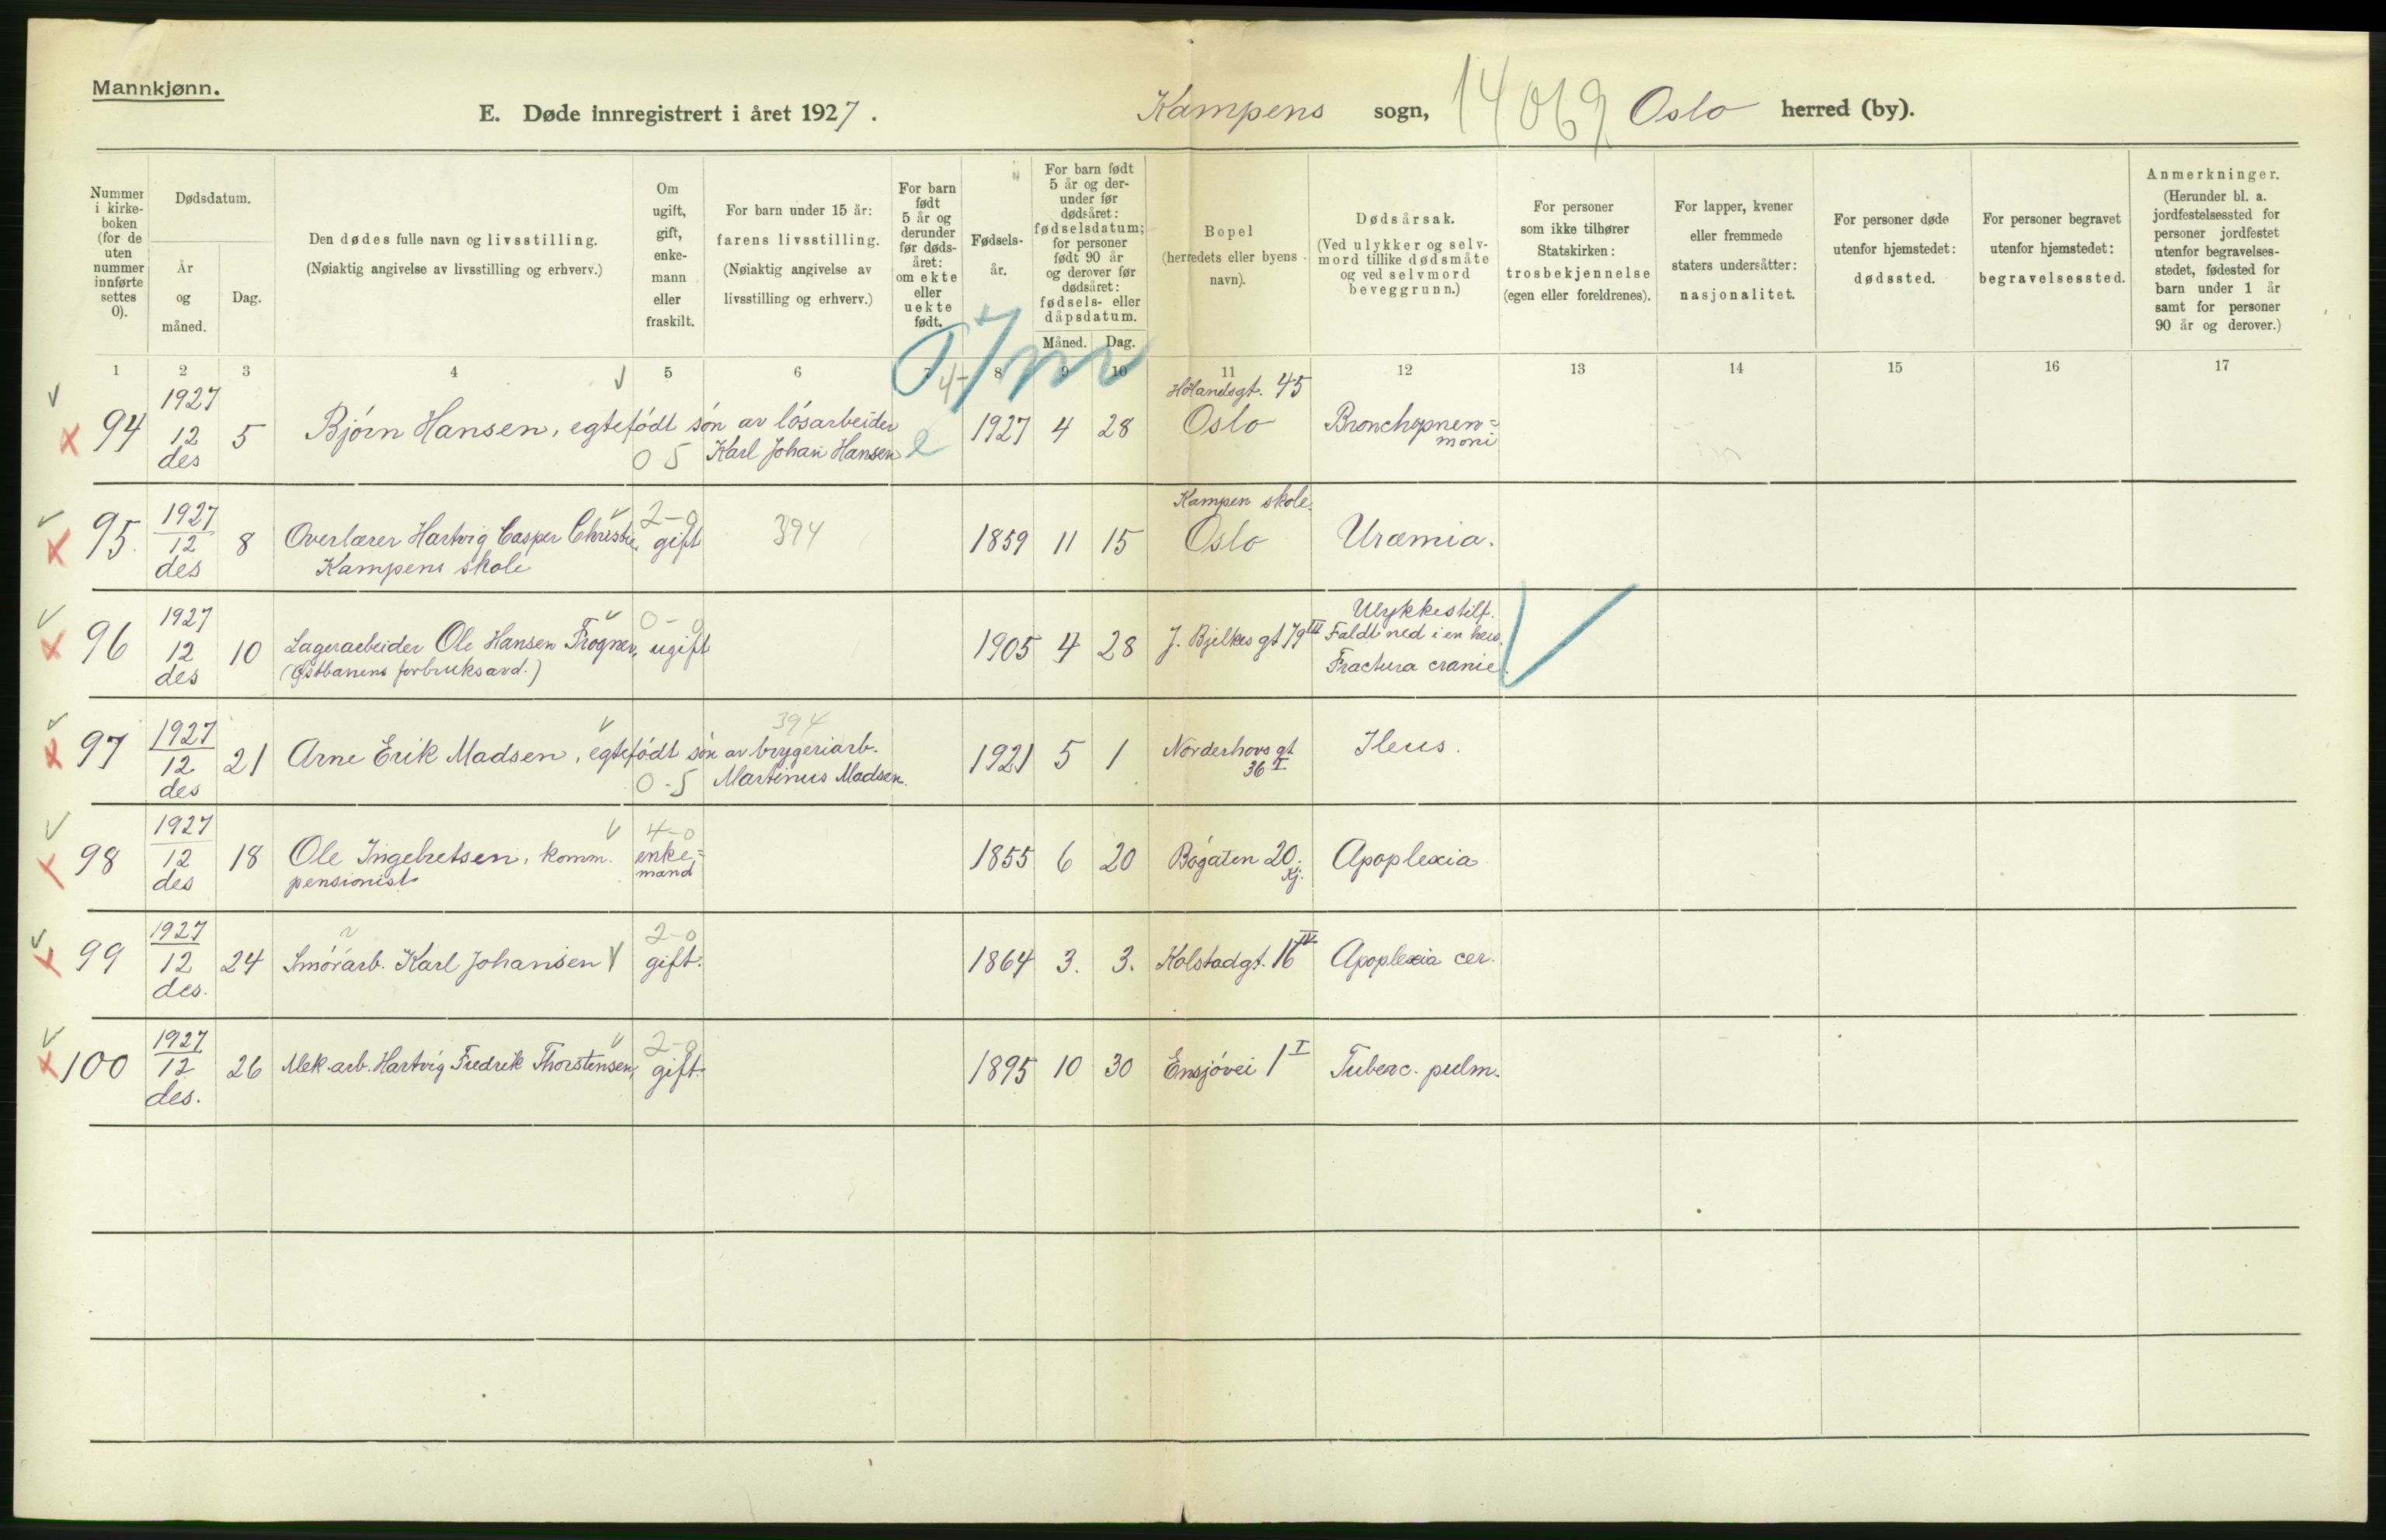 Mannkjønn.
E. Døde innregistrert i året 1927.
Kampens sogn, 14069 Oslo herred (by).
Nummer i kirke-boken (for de uten nummer innførte settes 0).
Dødsdatum.
År og måned.
Dag.
Den dødes fulle navn og livsstilling.
(Nøiaktig angivelse av livsstilling og erhverv.)
Om ugift, gift, enke-mann eller fraskilt.
For barn under 15 år:
farens livsstilling.
(Nøiaktig angivelse av livsstilling og erhverv.)
For barn født 5 år og derunder før døds-året: om ekte eller uekte født.
Fødsels-år.
For barn født 5 år og der-under før dødsåret: fødselsdatum; for personer født 90 år og derover før dødsåret: fødsels- eller dåpsdatum.
Måned. Dag.
Bopel
(herredets eller byens navn).
Dødsårsak.
(Ved ulykker og selv-mord tillike dødsmåte og ved selvmord beveggrunn.)
For personer som ikke tilhører Statskirken:
trosbekjennelse
(egen eller foreldrenes).
For lapper, kvener eller fremmede staters undersåtter:
nasjonalitet.
For personer døde utenfor hjemstedet:
dødssted.
For personer begravet utenfor hjemstedet:
begravelsessted.
Anmerkninger.
(Herunder bl. a. jordfestelsessted for personer jordfestet utenfor begravelses-stedet, fødested for barn under 1 år samt for personer 90 år og derover.)
1 2 3 4 5 6 7 8 9 10 11 12 13 14 15 16 17
94 1927 12 des 5 Bjørn Hansen, egtefødt søn av løsarbeider Karl Johan Hansen 0 5 e 1927 4 28 Hølandsgt. 45 Oslo Bronchopnen=moni
95. 1927 12 des 8 Overlærer Hartvig Casper Christie, Kampens skole 2-0 gift 394 1859 11 15 Kampen skole. Oslo Uræmia.
96 1927 12 des 10 Lagerarbeider Ole Hansen Frogner, (Østbanens forbruksavd.) 0-0 ugift 1905 4 28 J. Bjelkes gt 79 III Ulykkestilf. Faldt ned i en heis. Fractura cranie.
97 1927 12 des 21 Arne Erik Madsen, egtefødt søn av brygeriarb. Martinus Madsen. 0-5 394 1921 5 1 Norderhovs gt 36 I Ileus.
98 1927 12 des 18 Ole Ingebretsen, komm. pensionist 4-0 enke=mand 1855 6 20 Bøgaten 20. Kj. Apoplexia
99 1927 12 des. 24 Smørarb. Karl Johansen 2-0 gift. 1864 3. 3. Kolstadgt. 16 IV Apoplexia cer.
100 1927 12 des. 26 Mek.arb. Hartvig Fredrik Thorstensen, 2-0 gift. 1895 10 30 Ensjøvei 1 I Tuberc. pulm.